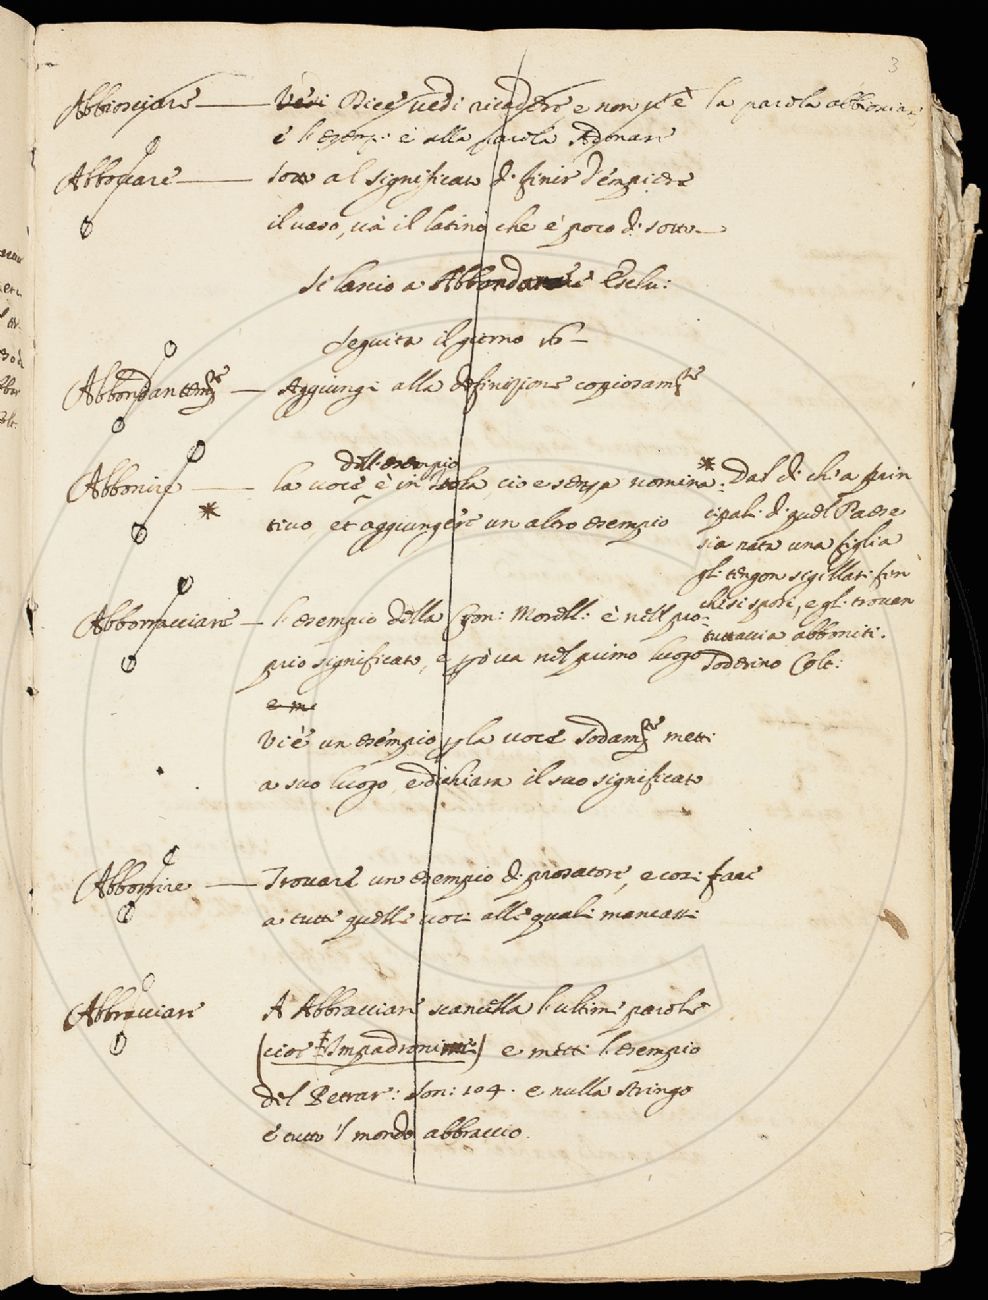 3
Abbiosciare — Vedi Dice vedi ricadere, e non v'è la parola abbiosciare
e l'esemp: è alla parola Adonare
Abboccare — sotto al significato di finir d'empiere
il vaso, và il latino che è poco di sotto —
si lasciò a Abbondare Esclu:
Seguita il giorno 16 —
Abbondantem.te — Aggiungi alla definizione copiosam.te
dell'esempio
Abbonire — la voce è in sola, cioè senza nomina:
* tivo, et aggiungere un altro esempio
* Dal dì ch'a prin
cipali di quel Paese
sia nata una figlia
gli tengon sigillati fin
ch'si sposi, e gli trovan
tuttavia abboniti.
Soderino Colt:
Abbonacciare — l'esempio della Cron: Morell: è nell pro-
prio significato, e và nel primo luogo
e m
Vi è un esempio p la voce Sodam.te metti
a suo luogo, e dichiara il suo significato
Abborrire — Trovare un esempio di prosatore, e cosi fare
a tutte quelle voci alle quali mancassi
Abbracciare A Abbracciare scancella l'ultime parole
(cioè Impadronirsi) e metti l'esempio
del Petrar: Son: 104. e nulla stringo
e tutto 'l mondo abbraccio.